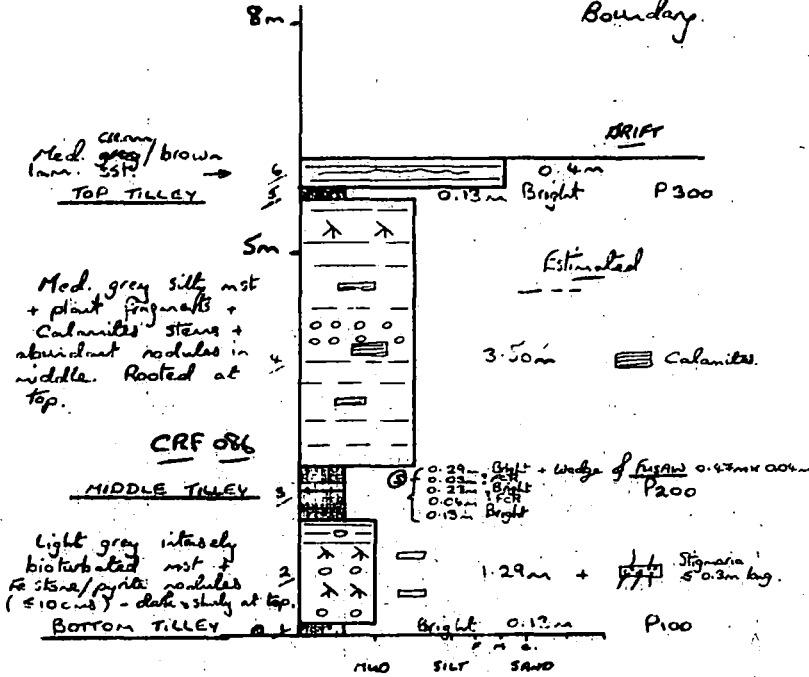 8m
Boundary.
DRIFT
Med. grey/brown
lam. sst.
6
0.4m
TOP TILLEY
5
0.13m Bright P300
5m
Estimated
Med. grey silty mst
+ plant fragments +
Calamites stems +
abundant nodules in
middle. Rooted at
top.
4
3.50m
Calamites.
CRF 086
MIDDLE TILLEY
3
0.29m Bright + wedge of FUSAIN 0.47m x 0.04m
Bright
0.04m
0.13m Bright
P200
Light grey intensely
bioturbated mst +
Fe stone/pyrite nodules
(≤10cms) - dark + shaly at top.
2
1.29m +
Stigmaria
≤ 0.3m long.
BOTTOM TILLEY
1
Bright P100
F M C.
MUD SILT SAND